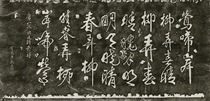 鶯啼岸
柳弄春晴
柳弄春
晴夜月明
明月夜晴
春弄柳
晴春弄柳
岸啼鶯